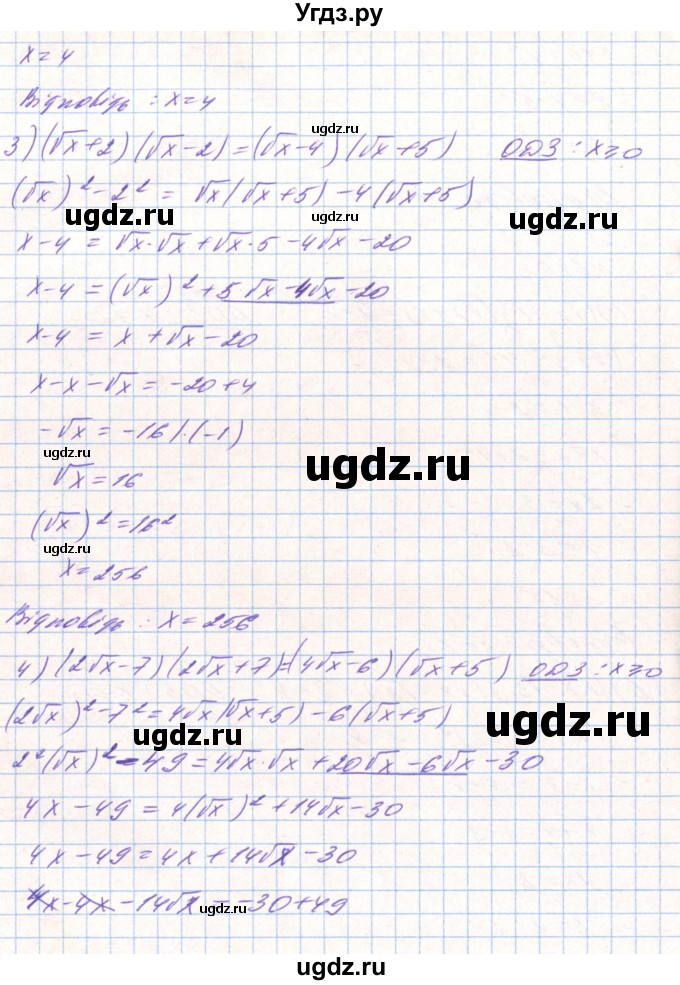 Угдз.ру
x=4
Відповідь: x=4
ugdz.ru
3) (√x+2)(√x-2)=(√x-4)(√x+5) ОДЗ: x≥0
(√x)²-2²= √x(√x+5)-4(√x+5)
ugdz.ru ugdz.ru ugdz.ru
x-4=√x·√x+√x·5-4√x-20
x-4=(√x)²+5√x-4√x-20
ugdz.ru
x-4=x+√x-20
x-x-√x=-20+4
-√x=-16 |·(-1)
ugdz.ru
ugdz.ru
√x=16
(√x)²=16²
ugdz.ru
x=256
Відповідь: x=256
ugdz.ru
4) (2√x-7)(2√x+7)=(4√x-6)(√x+5) ОДЗ: x≥0
(2√x)²-7²=4√x(√x+5)-6(√x+5)
ugdz.ru ugdz.ru
2²(√x)²-49=4√x·√x+20√x-6√x-30
4x-49=4(√x)²+14√x-30
ugdz.ru
4x-49=4x+14√x-30
4x-4x-14√x=-30+49
ugdz.ru
ugdz.ru